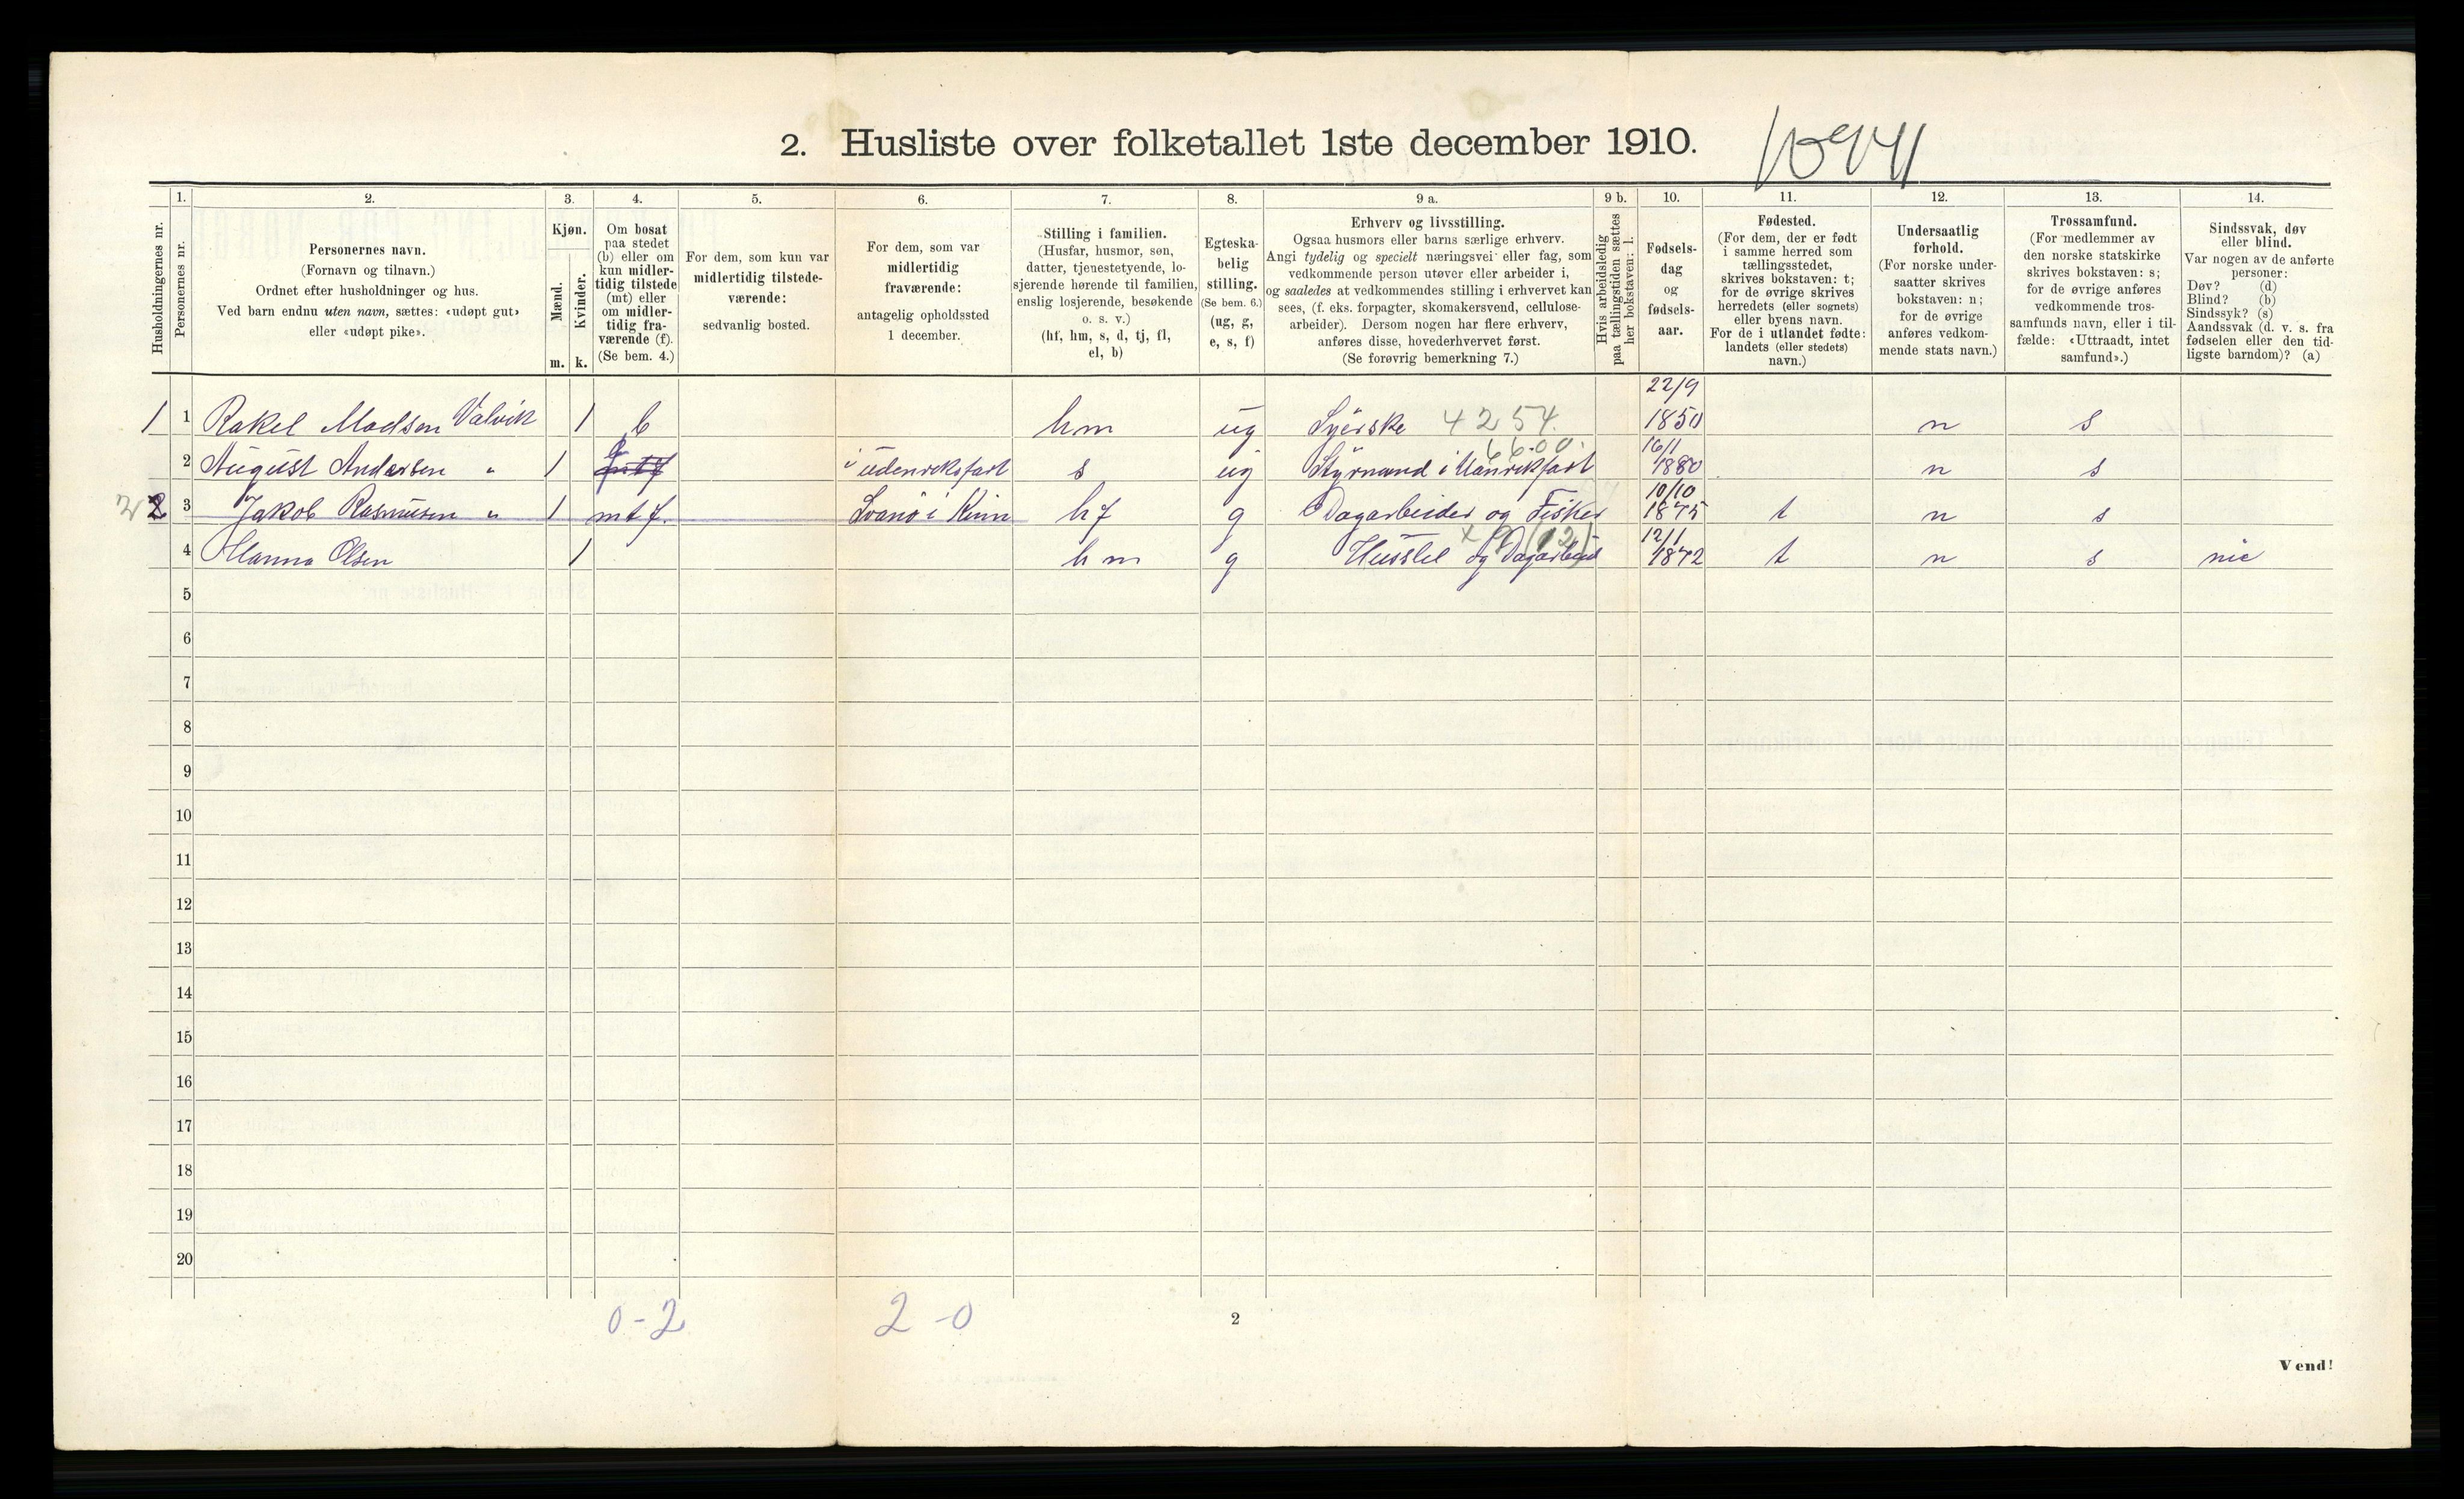 2. Husliste over folketallet 1ste december 1910.
1. 2. 3. 4. 5. 6. 7. 8. 9 a. 9 b. 10. 11. 12. 13. 14.
Husholdningernes nr.
Personernes nr.
Personernes navn.
(Fornavn og tilnavn.)
Ordnet efter husholdninger og hus.
Ved barn endnu uten navn, sættes: «udøpt gut»
eller «udøpt pike».
Kjøn.
Mænd.
Kvinder.
m. k.
Om bosat
paa stedet
(b) eller om
kun midler-
tidig tilstede
(mt) eller
om midler-
tidig fra-
værende (f).
(Se bem. 4.)
For dem, som kun var
midlertidig tilstede-
værende:
sedvanlig bosted.
For dem, som var
midlertidig
fraværende:
antagelig opholdssted
1 december.
Stilling i familien.
(Husfar, husmor, søn,
datter, tjenestetyende, lo-
sjerende hørende til familien,
enslig losjerende, besøkende
o. s. v.)
(hf, hm, s, d, tj, fl,
el, b)
Egteska-
belig
stilling.
(Se bem. 6.)
(ug, g,
e, s, f)
Erhverv og livsstilling.
Ogsaa husmors eller barns særlige erhverv.
Angi tydelig og specielt næringsvei eller fag, som
vedkommende person utøver eller arbeider i,
og saaledes at vedkommendes stilling i erhvervet kan
sees, (f. eks. forpagter, skomakersvend, cellulose-
arbeider). Dersom nogen har flere erhverv,
anføres disse, hovederhvervet først.
(Se forøvrig bemerkning 7.)
Hvis arbeidsledig
paa tællingstiden sættes
her bokstaven: l.
Fødsels-
dag
og
fødsels-
aar.
Fødested.
(For dem, der er født
i samme herred som
tællingsstedet,
skrives bokstaven: t;
for de øvrige skrives
herredets (eller sognets)
eller byens navn.
For de i utlandet fødte:
landets (eller stedets)
navn.)
Undersaatlig
forhold.
(For norske under-
saatter skrives
bokstaven: n;
for de øvrige
anføres vedkom-
mende stats navn.)
Trossamfund.
(For medlemmer av
den norske statskirke
skrives bokstaven: s;
for de øvrige anføres
vedkommende tros-
samfunds navn, eller i til-
fælde: «Uttraadt, intet
samfund».)
Sindssvak, døv
eller blind.
Var nogen av de anførte
personer:
Døv? (d)
Blind? (b)
Sindssyk? (s)
Aandssvak (d. v. s. fra
fødselen eller den tid-
ligste barndom)? (a)
22/9
1 1 Rakel Madsen Valvik 1 b hm ug Syerske 4254. 1850 n s
6600. 16/1
2 August Andersen " 1 i udenriksfart s ug Styrmand i Uanrikfart 1880 n s
10/10
2 3 Jakob Rasmusen " 1 mtf. Svanö i Kinn hf g Dagarbeider og Fisker 1875 t n s
12/1
4 Hanna Olsen 1 hm g Husstel og Dagarbeid 1872 t n s
5
6
7
8
9
10
11
12
13
14
15
16
17
18
19
20
0-2 2-0
2
Vend!